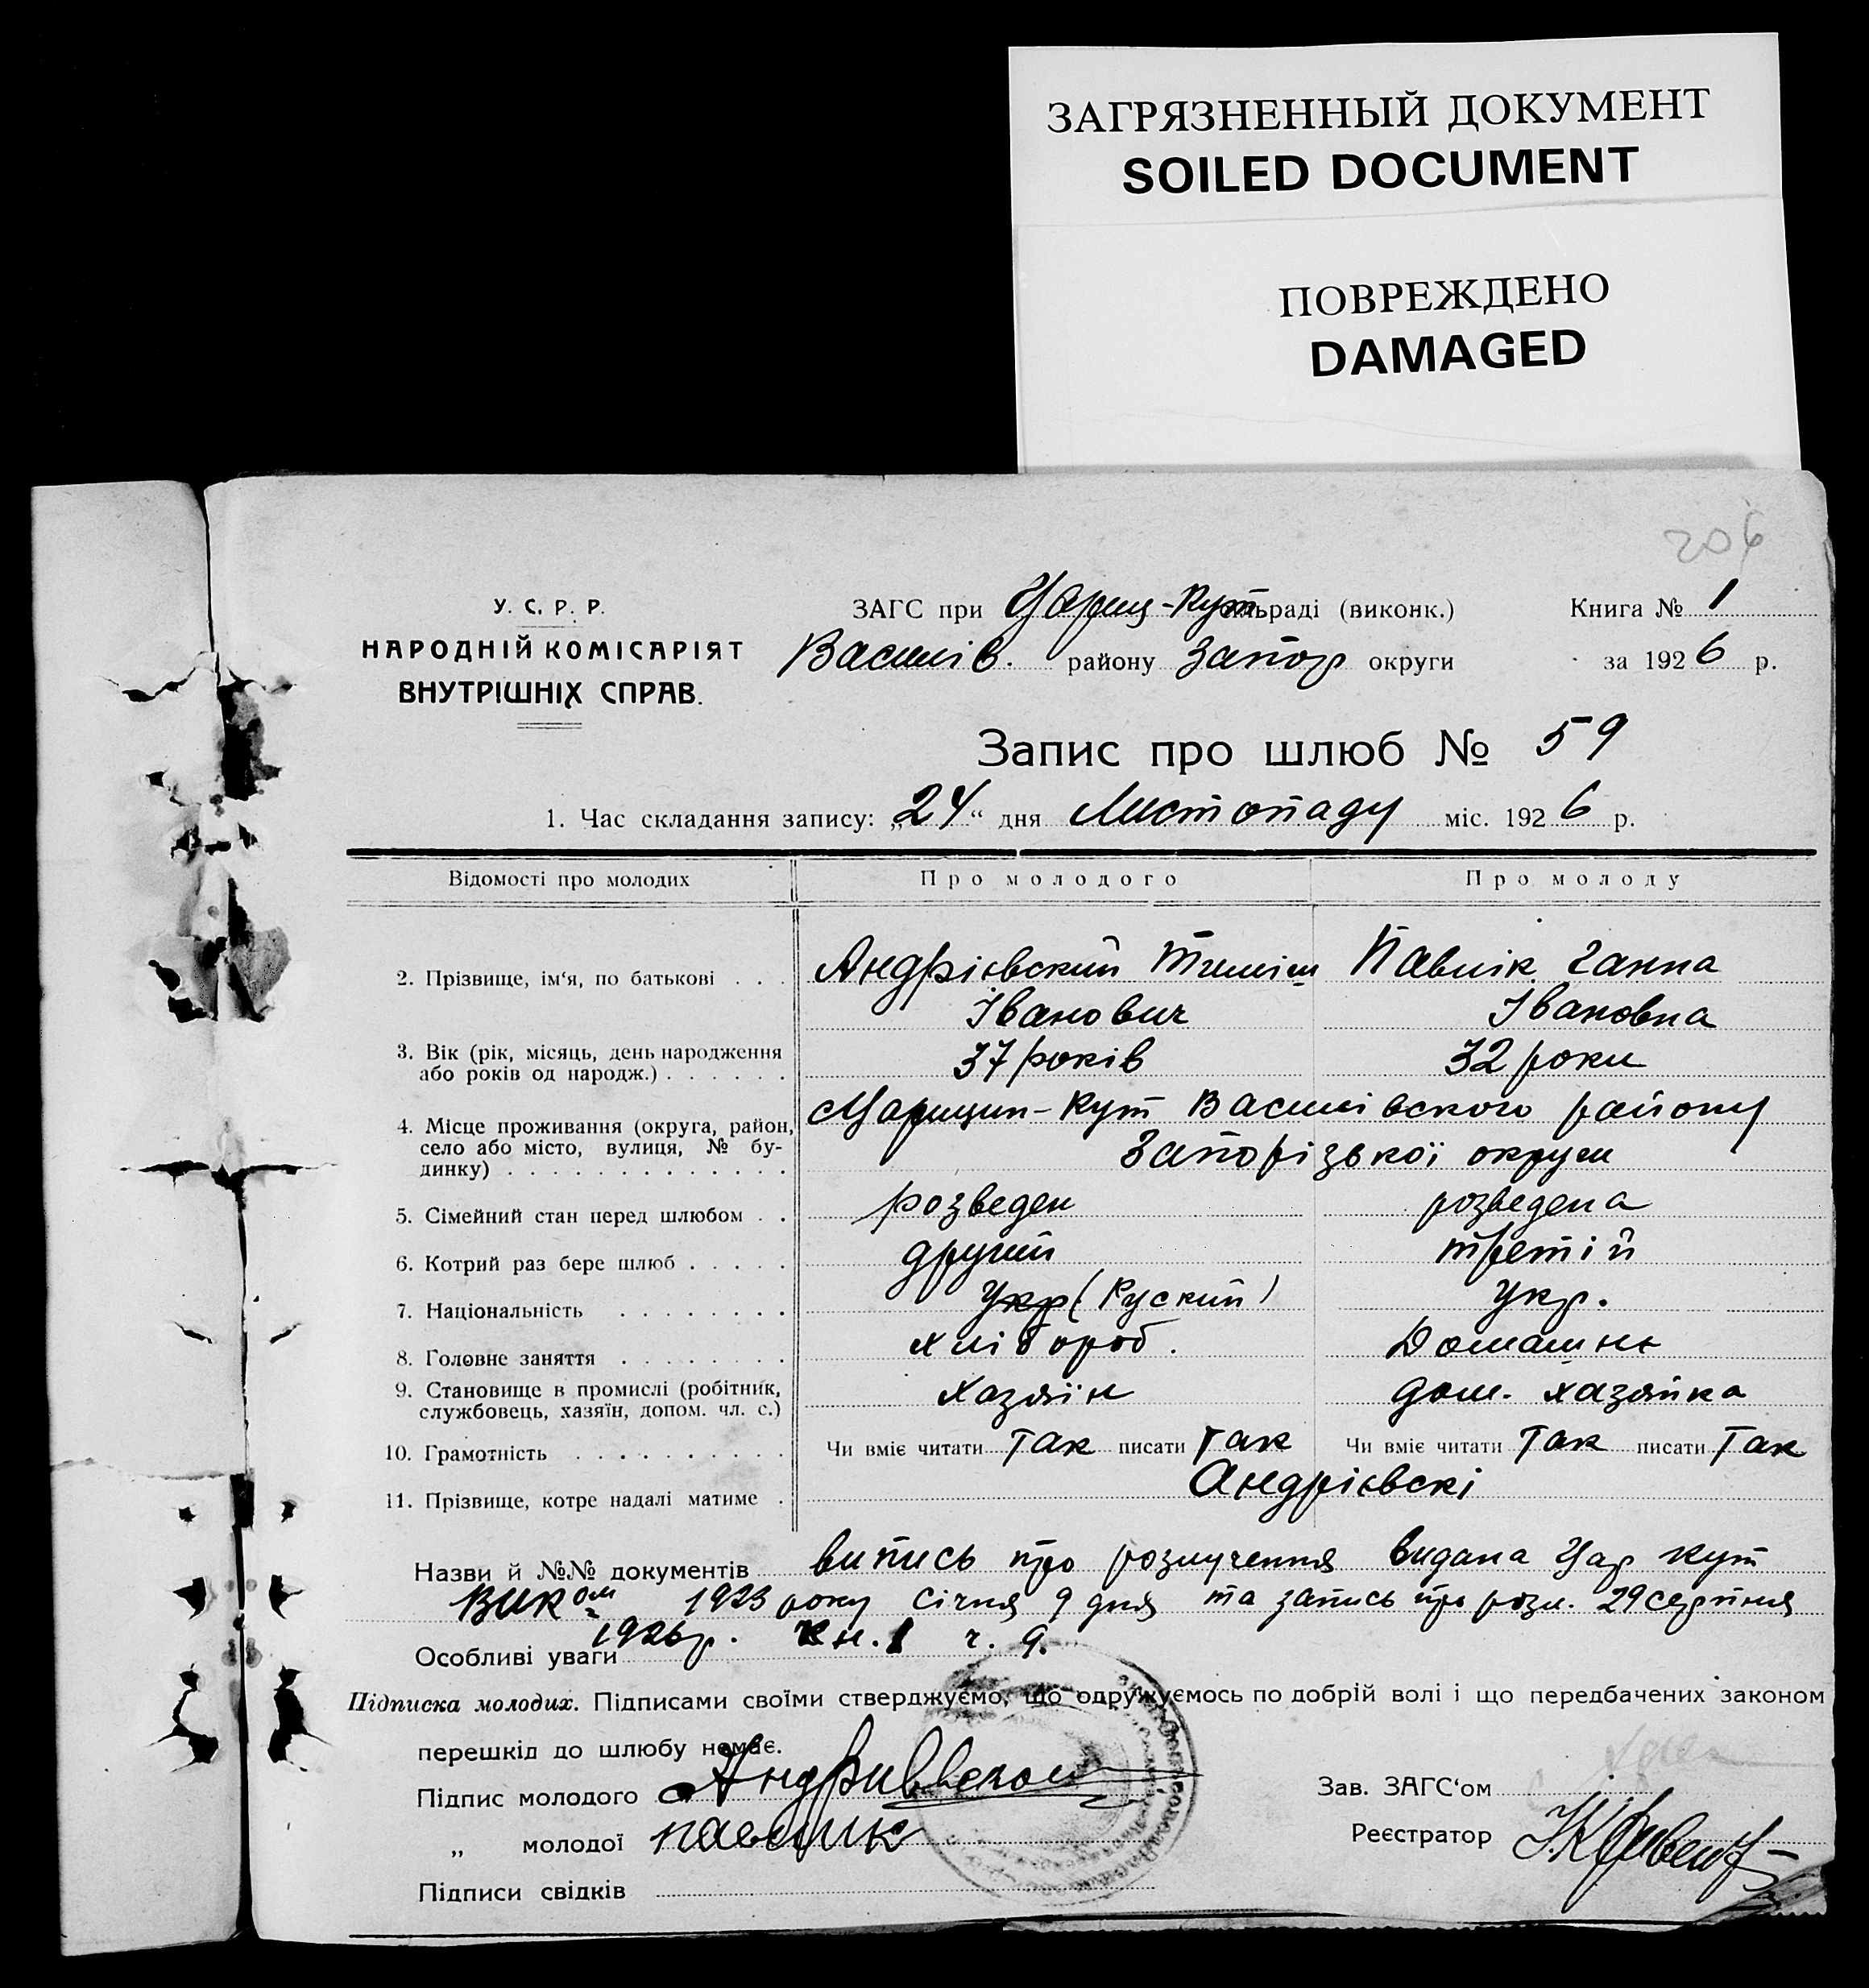 ЗАГРЯЗНЕННЫЙ ДОКУМЕНТ
SOILED DOCUMENT
ПОВРЕЖДЕНО
DAMAGED
206
У. С. Р. Р.
НАРОДНІЙ КОМІСАРІЯТ
ВНУТРІШНІХ СПРАВ.
ЗАГС при Цариц-Кут. сільраді (виконк.)
Василів. району Запор округи
Книга № 1
за 1926 р.
Запис про шлюб № 59
1. Час складання запису: „24“ дня Листопаду міс. 1926 р.
Відомості про молодих Про молодого Про молоду
2. Прізвище, ім‘я, по батькові . . . Андрієвский Тиміш Павлік Ганна
Іванович Івановна
3. Вік (рік, місяць, день народження
або років од народж.) . . . . . . 37 років 32 роки
4. Місце проживання (округа, район,
село або місто, вулиця, № бу-
динку) . . . . . . . . . . . . .
Царицин-Кут Василівского району
Запорізької округи
5. Сімейний стан перед шлюбом . . розведен розведена
6. Котрий раз бере шлюб . . . . . другий третій
7. Національність . . . . . . . . Укр (Руский) Укр.
8. Головне заняття . . . . . . . . хлібороб. Домашнє
9. Становище в промислі (робітник,
службовець, хазяїн, допом. чл. с.) хазяїн дом. хазяйка
10. Грамотність . . . . . . . . . . Чи вміє читати Так писати Так Чи вміє читати Так писати Так
11. Прізвище, котре надалі матиме . Андрієвскі
Назви й №№ документів випись про розлучення видана Цар Кут
Виком 1923 року січня 9 дня та запись про розл. 29 серпня
Особливі уваги 1926 р. Кн. 1 ч. 9.
Підписка молодих. Підписами своїми стверджуємо, що одружуємось по добрій волі і що передбачених законом
перешкід до шлюбу немає.
Підпис молодого
„ молодої павлик
Підписи свідків
Зав. ЗАГС‘ом
Реєстратор